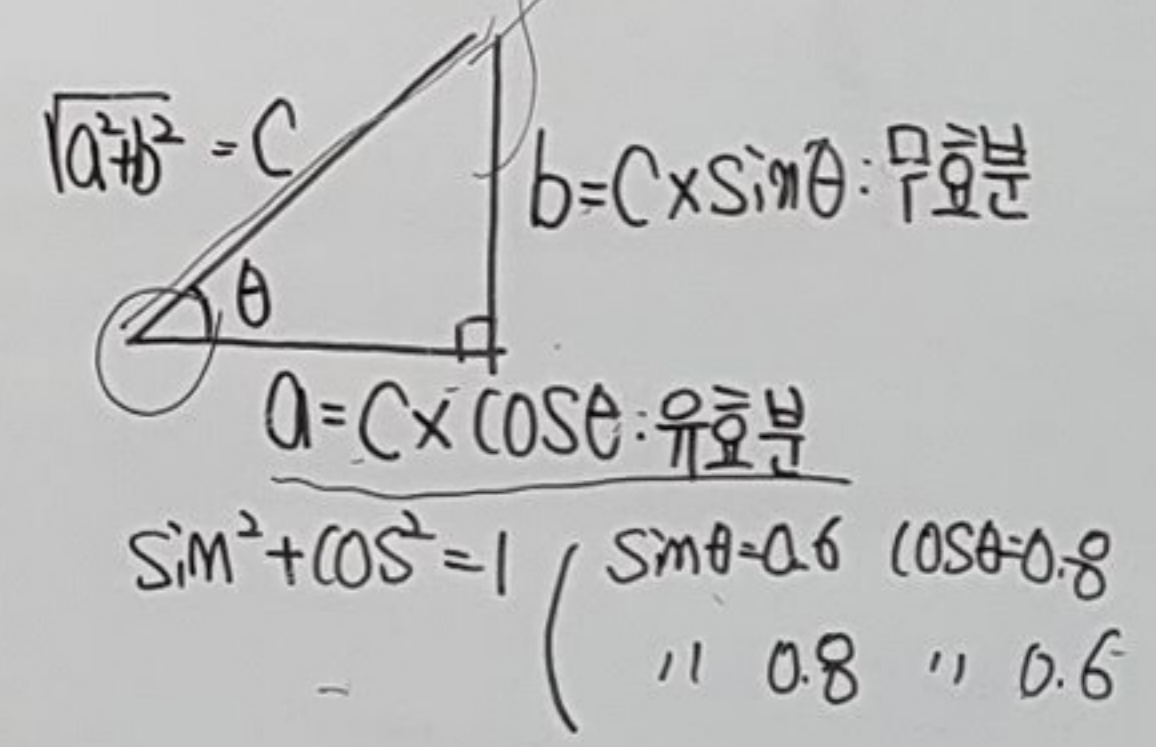 √a²+b² = C
b=C×sinθ:무효분
θ
a=C×cosθ:유효분
sin²+cos²=1 ( sinθ=0.6 cosθ=0.8
〃 0.8 〃 0.6